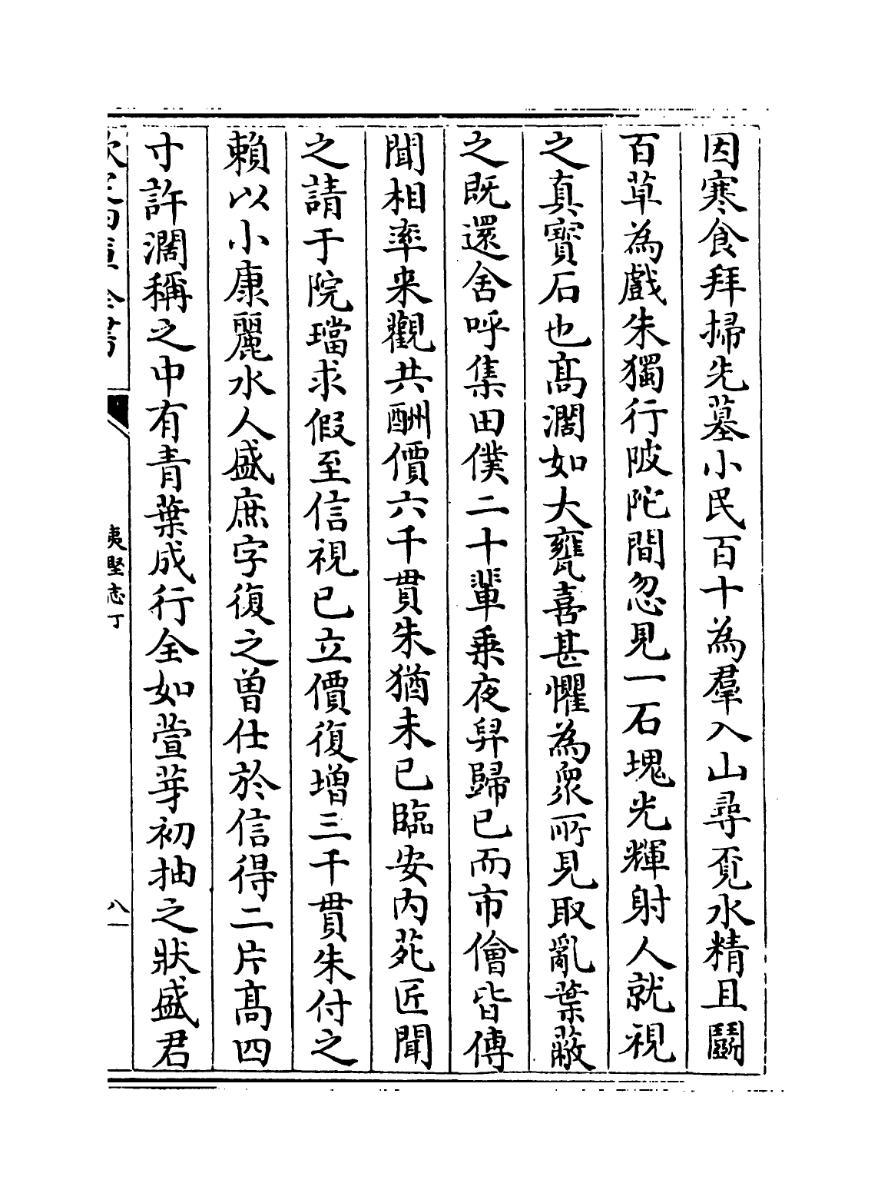 因寒食拜掃先墓小民百十為羣入山尋覔水精且鬭
百草為戲朱獨行陂陀間忽見一石塊光輝射人就視
之真寳石也髙濶如大甕喜甚懼為衆所見取亂葉蔽
之既還舍呼集田僕二十輩乗夜舁歸已而市儈皆傳
聞相率来觀共酬價六千貫朱猶未已臨安内苑匠聞
之請于院璫求假至信視已立價復增三千貫朱付之
賴以小康麗水人盛庶字復之曽仕於信得二片髙四
寸許濶稱之中有青葉成行全如萱芽初抽之狀盛君
欽定四庫全書
夷堅志丁
八